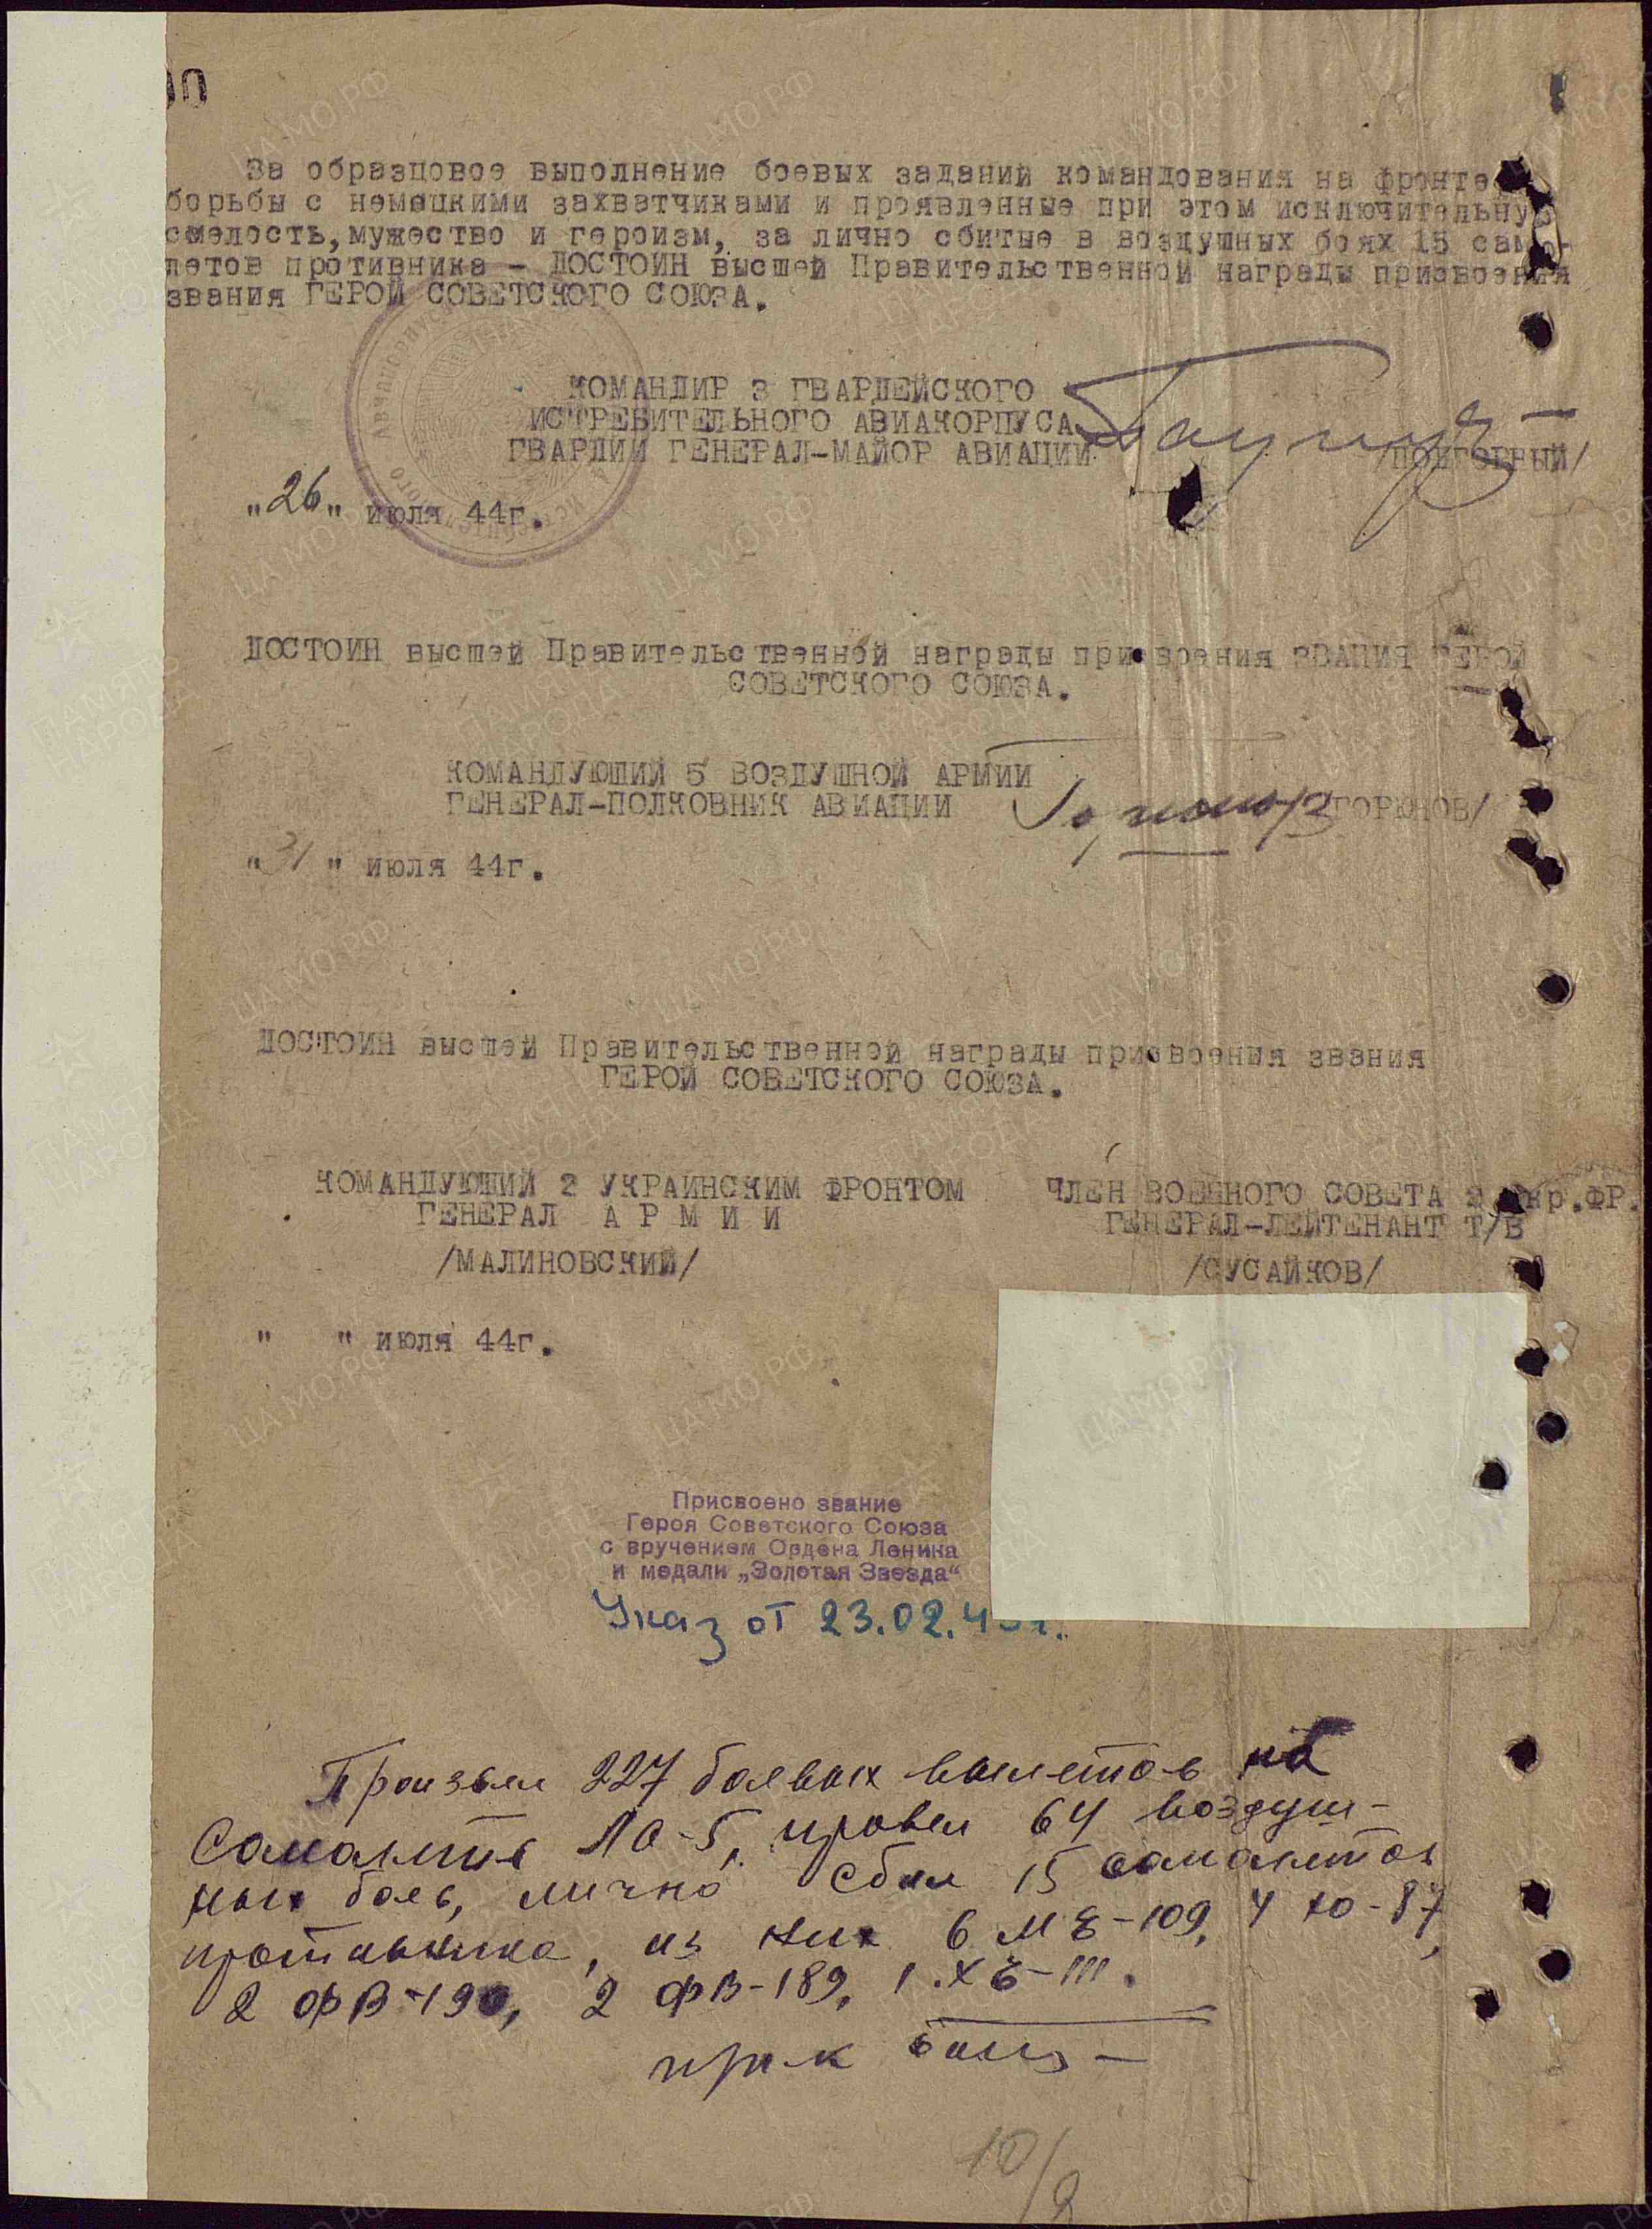 За образцовое выполнение боевых заданий командования на фронте
борьбы с немецкими захватчиками и проявленные при этом исключительную
смелость, мужество и героизм, за лично сбитые в воздушных боях 15 само-
летов противника – ДОСТОИН высшей Правительственной награды присвоения
звания ГЕРОЙ СОВЕТСКОГО СОЮЗА.
КОМАНДИР 3 ГВАРДЕЙСКОГО
ИСТРЕБИТЕЛЬНОГО АВИАКОРПУСА
ГВАРДИИ ГЕНЕРАЛ-МАЙОР АВИАЦИИ /ПОДГОРНЫЙ/
"26" июля 44г.
ДОСТОИН высшей Правительственной награды присвоения ЗВАНИЯ ГЕРОЙ
СОВЕТСКОГО СОЮЗА.
КОМАНДУЮЩИЙ 5 ВОЗДУШНОЙ АРМИИ
ГЕНЕРАЛ-ПОЛКОВНИК АВИАЦИИ ГОРЮНОВ/
"31" июля 44г.
ДОСТОИН высшей Правительственной награды присвоения звания
ГЕРОЙ СОВЕТСКОГО СОЮЗА.
КОМАНДУЮЩИЙ 2 УКРАИНСКИМ ФРОНТОМ ЧЛЕН ВОЕННОГО СОВЕТА 2 Укр.ФР.
ГЕНЕРАЛ АРМИИ ГЕНЕРАЛ-ЛЕЙТЕНАНТ Т/В
/МАЛИНОВСКИЙ/ /СУСАЙКОВ/
" " июля 44г.
Присвоено звание
Героя Советского Союза
с вручением Ордена Ленина
и медали „Золотая Звезда“
Указ от 23.02.4
Произвел 227 боевых вылетов на
самолете ЛА-5, провел 64 воздуш-
ных боев, лично сбил 15 самолетов
противника, из них 6 МЕ-109, 4 Ю-87,
2 ФВ-190, 2 ФВ-189, 1 ХЕ-111.
10/2